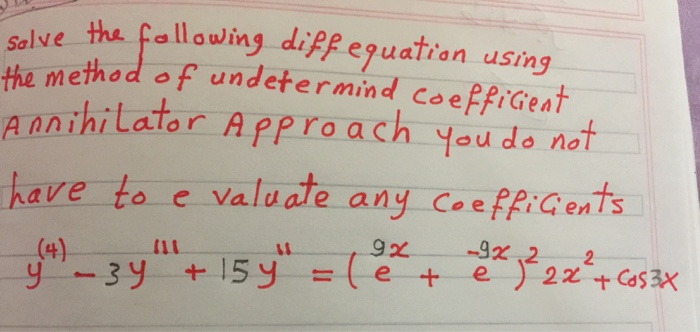 solve the following diff equation using
the method of undetermind coefficient
Annihilator Approach you do not
have to evaluate any coefficients
y⁽⁴⁾ - 3y''' + 15y'' = (e^{9x} + e^{-9x})² 2x² + cos3x